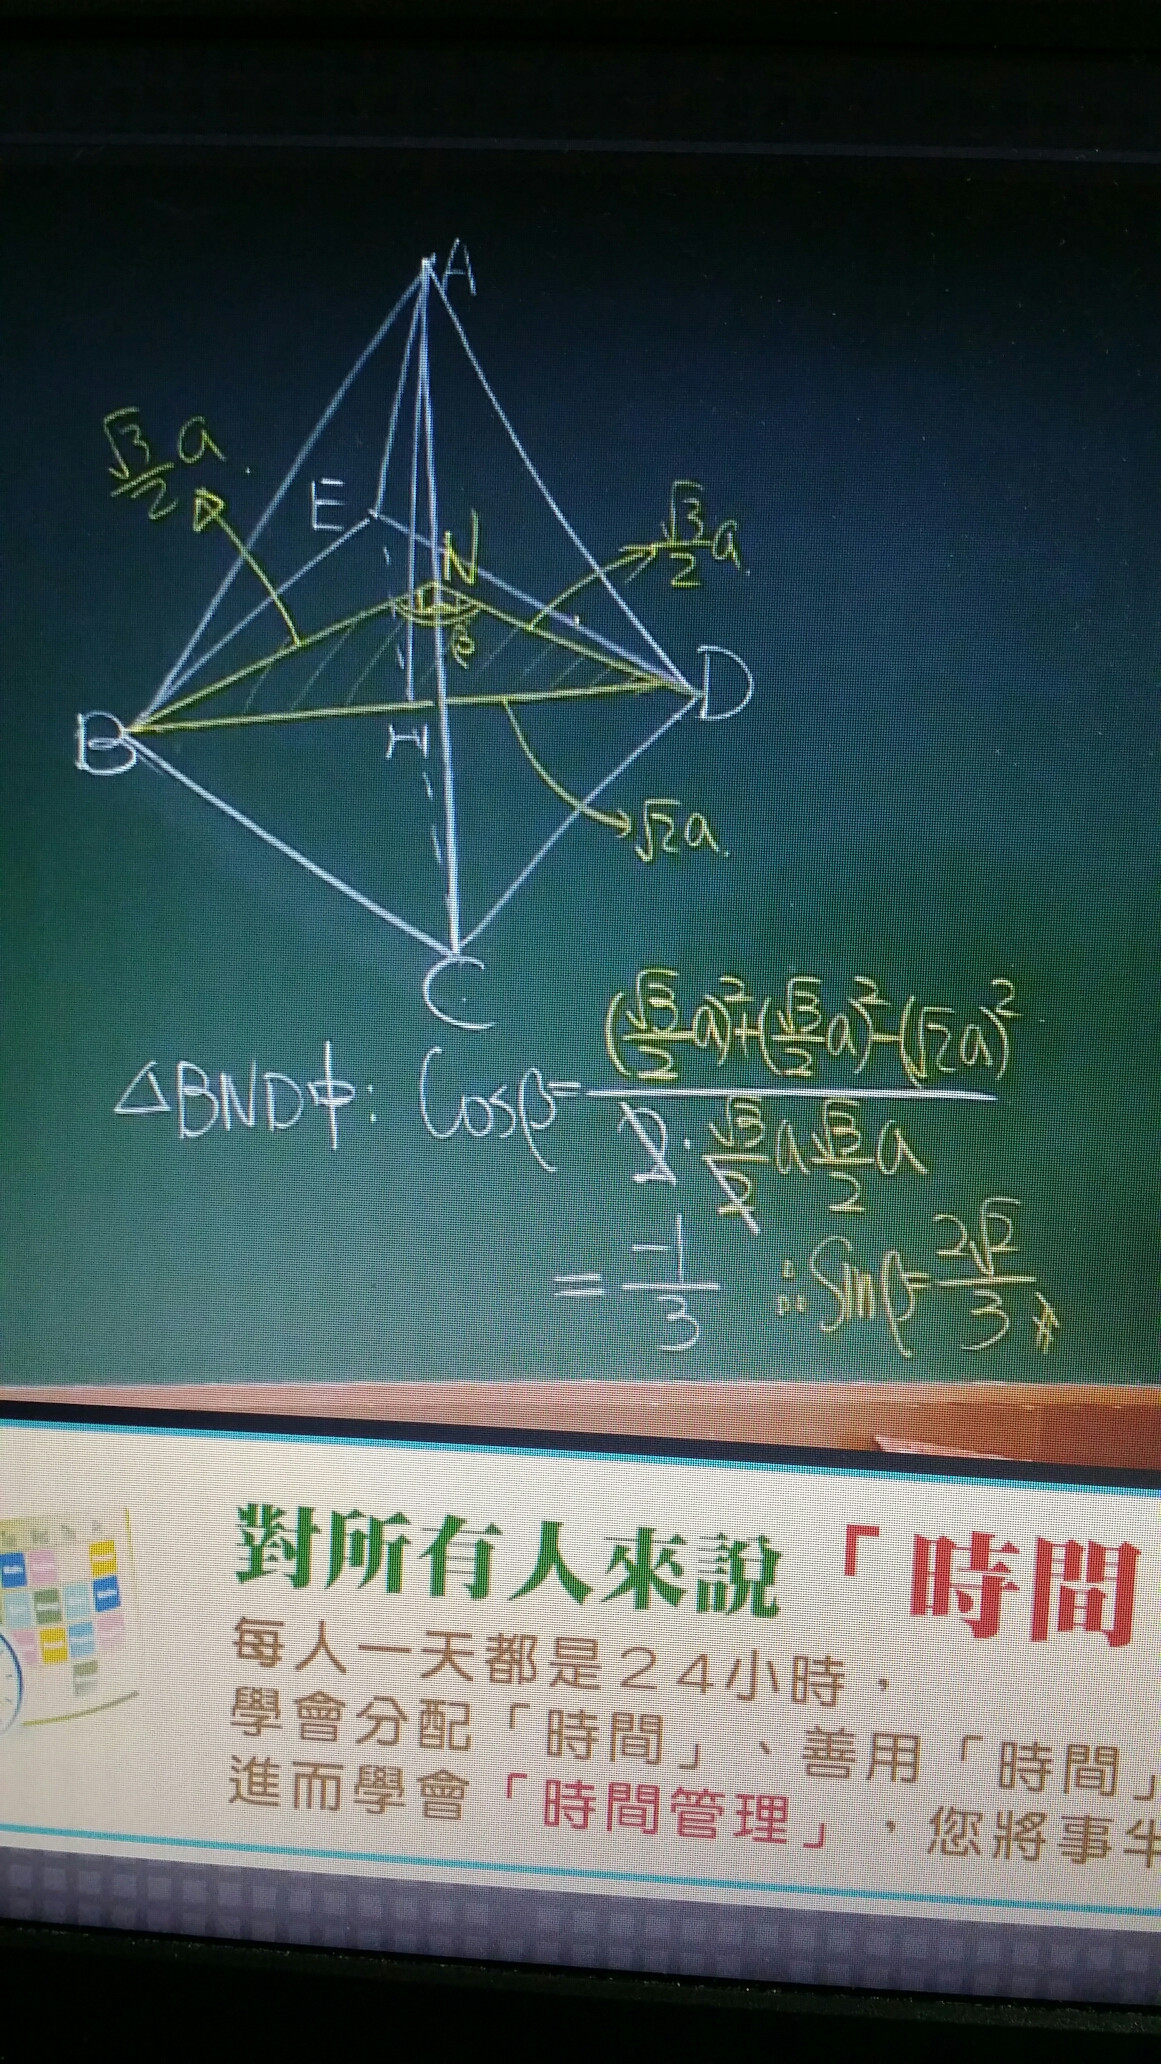 A
√3/2 a
E
N
√3/2 a
β
B
D
H
√2a
C
△BND中: Cosβ= ((√3/2 a)²+(√3/2 a)²-(√2a)²)/(2·√3/2 a √3/2 a)
= -1/3 ∴Sinβ= 2√2/3
對所有人來說「時間
每人一天都是24小時,
學會分配「時間」、善用「時間」
進而學會「時間管理」,您將事半